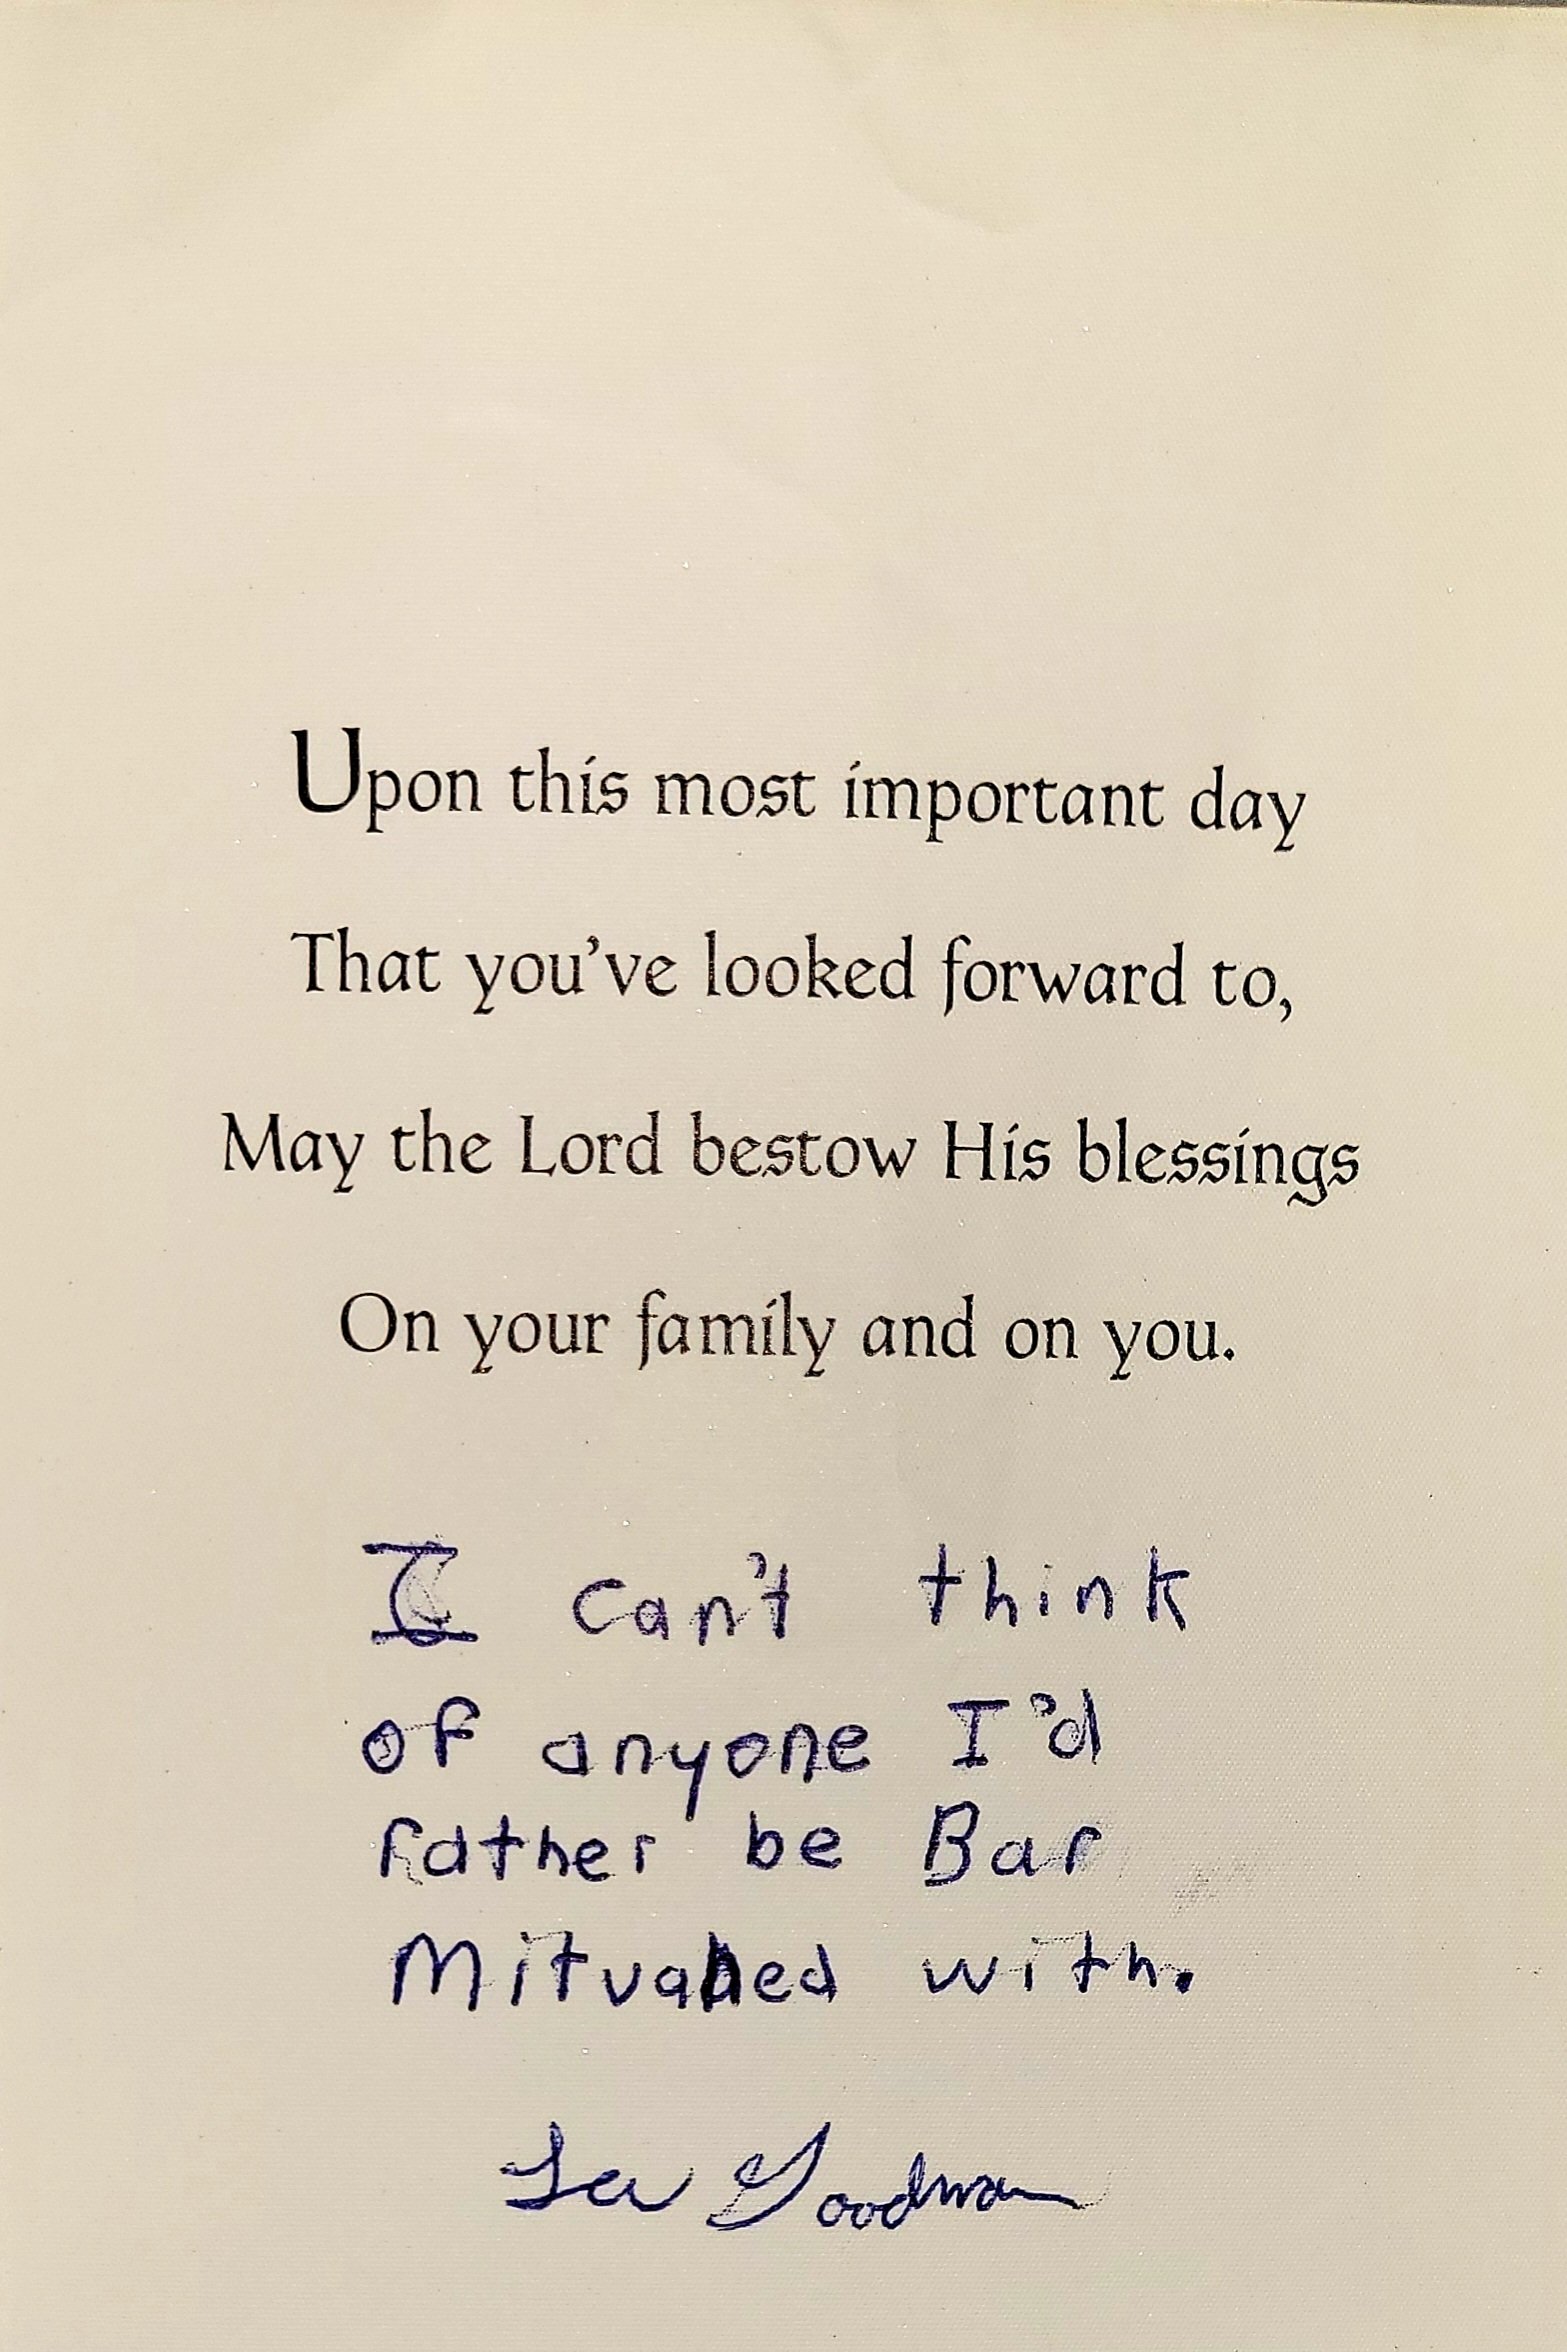 Upon this most important day
That you've looked forward to,
May the Lord bestow His blessings
On your family and on you.
I can't think
of anyone I'd
rather be Bar
Mitvahed with.
Lev Goodman